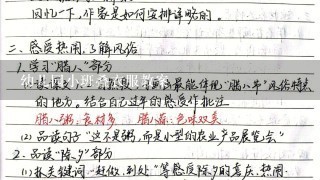 回忆一下,作家是如何安排详略的。
二、感受热闹,了解风俗
1.学习“腊八”部分
最能体现“腊八节”风俗特点
的地方。结合自己过年的感受作批注
腊八粥:食材多 腊八蒜:色味双美
(2)品读句子“这不是粥,而是小型的农业产品展览会”
2.品读“除夕”部分
(1)抓关键词“赶做,到处”等感受除夕的喜庆、热闹.